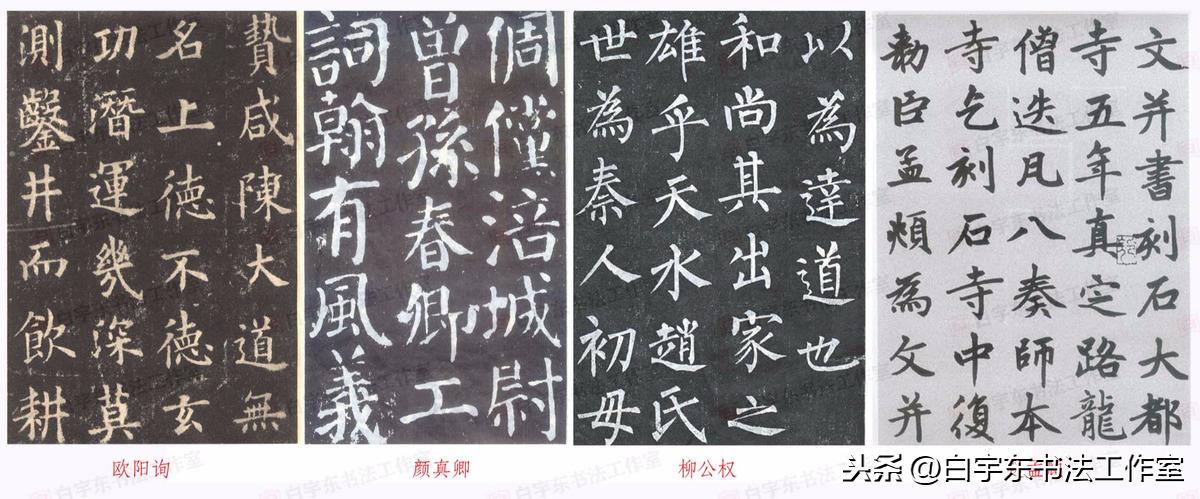 贄咸陳大道無
名上德不德玄
功潛運幾深莫
測鑿井而飲耕
倜儻涪城尉
曾孫春卿工
詞翰有風義
以為達道也
和尚其出家之
雄乎天水趙氏
世為秦人初母
文并書刻石大都
寺五年真定路龍
僧迭凡八奏師本
寺乞刻石寺中復
勅臣孟頫為文并
欧阳询
颜真卿
柳公权
头条@白宇东书法工作室